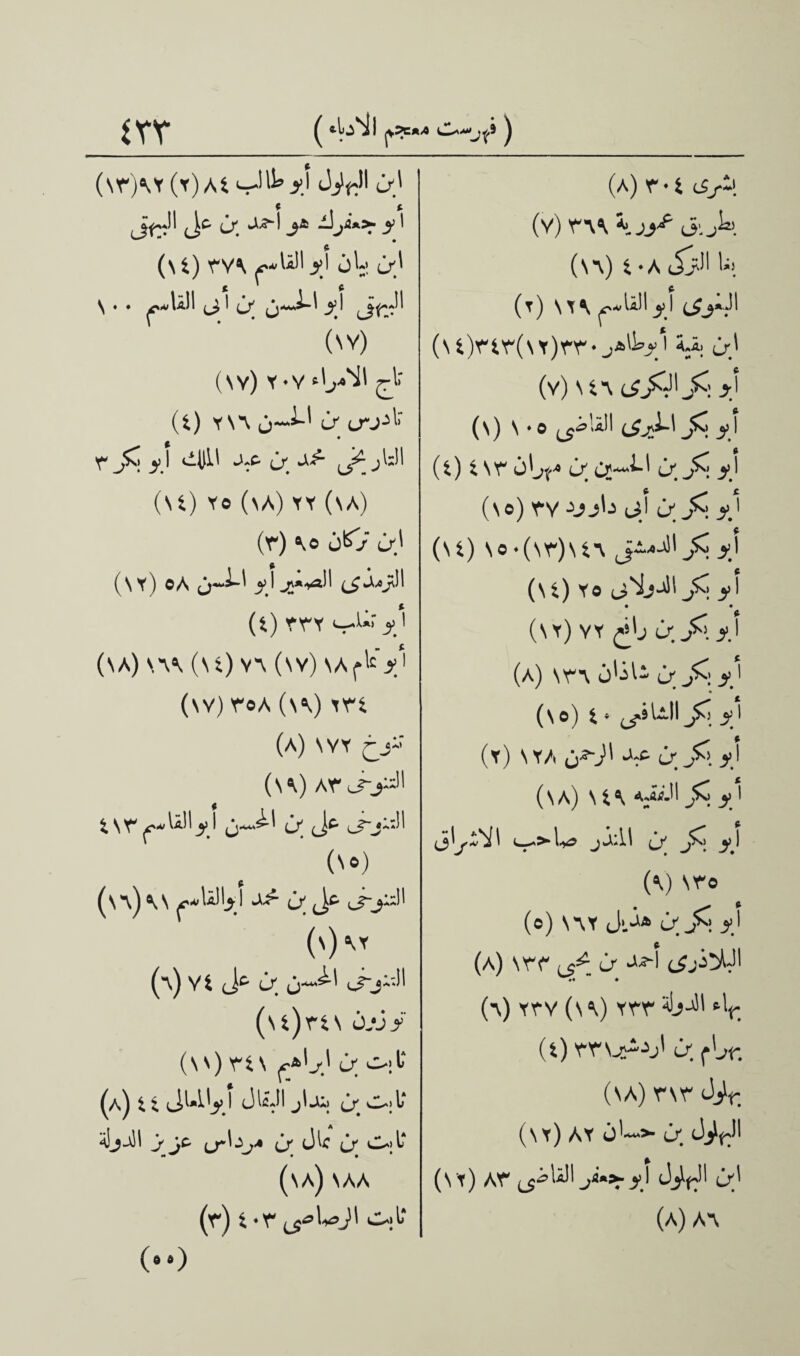 ( فهرست معجم الأدباء ) ٤٢٢
بشرى ٣٠٤ (٨)
بطريق عمورية ٣٦٩ (٧)
بغا التركي ٤٠٨ (١٦)
البغوي أبو القاسم ١٢٩ (٢)
ابن بقية أبو طاهر ٣٣٠(١٢)٣٤٣(١٤)
أبو بكر البكري ١٤٦ (٧)
أبو بكر الحيري القاضي ١٠٥ (١)
أبو بكر بن الحسين بن مهران ٤١٣ (٤)
أبو بكر بن أبي داود ٣٧ (١٥)
أبو بكر الدمشقي ١٤٦(١٣)١٥٠ (١٤)
أبو بكر الدولابي ٢٥ (١٤)
أبو بكر بن رافع ٧٢ (١٢)
أبو بكر بن شاذان ١٣٦ (٨)
أبو بكر الشافعي ٤٠ (١٥)
أبو بكر بن عبد الرحمن ١٢٨ (٢)
أبو بكر الفقيه ١٤٩ (١٨)
أبو بكر بن المنذر صاحب الاشراق
١٣٥ (٩)
أبو بكر بن هذيل ١٦٢ (٥)
البلاذري أحمد بن يحيى ١٣٣ (٨)
بهاء الدولة ٢٣٣ (١٩) ٢٣٧ (٦)
بهرام بن اردشير ٣٣٦ (٤)
بهلول ٣١٣ (١٨)
البهلول بن حسان ٨٢ (١٢)
ابن البهلول أبو جعفر القاضي ٨٣ (١٢)
٨٦ (٨)
ابن البهلول أبو طالب ٨٤ (٢) ٩٢(١٣)
أبو جعفرك هو أحمد بن علي البيهقي
ابن بيان أبو القاسم ٣٧٩ (١٤)
البيهقي أبو الحسن بن أبي القاسم ١٠٠
(١٧)
تاج الأمراء ٢٠٧ (١٧)
تاذرس بن الحسن ٢٦١ (٤)
التاريخي محمد بن عبد الملك أبو بكر ٣
(١٨) ٢٢ (١٨) ٢٥ (١٤)
ابن تركان ٩٥ (٣)
الترمذي الصغير أبو الحسن ٥٨ (١٢)
أبو تغلب ٣٣٢ (٤)
أبو تمام ١٨ (١٧) ٧٦ (١٤) ١٦٩ (١٨)
٢٣٤ (١٩) ٣٥٨ (١٧)
تنوخ ١٧٢ (٨)
التنوخي ٨٣ (١٩)
التنوخي علي بن المحسن أبو القاسم ٤١٣
(١٥)
التنوخي علي بن محمد أبو القاسم ٩١ (١٦)
٩٢ (١)
التنوخي المحسن بن علي ٧٤ (٦)
توزون ٣٤١(١٤)
ثابت بن إبراهيم ٣٤١ (١١)
ثابت بن بندار البقال أبو المعالي ٤٤ (٨)
ثابت بن ثمال بن مرداس عزيز الدولة
١٨٨ (١٨)
ثابت الرصاصي ٤٠٣ (٣)
(٥٥)